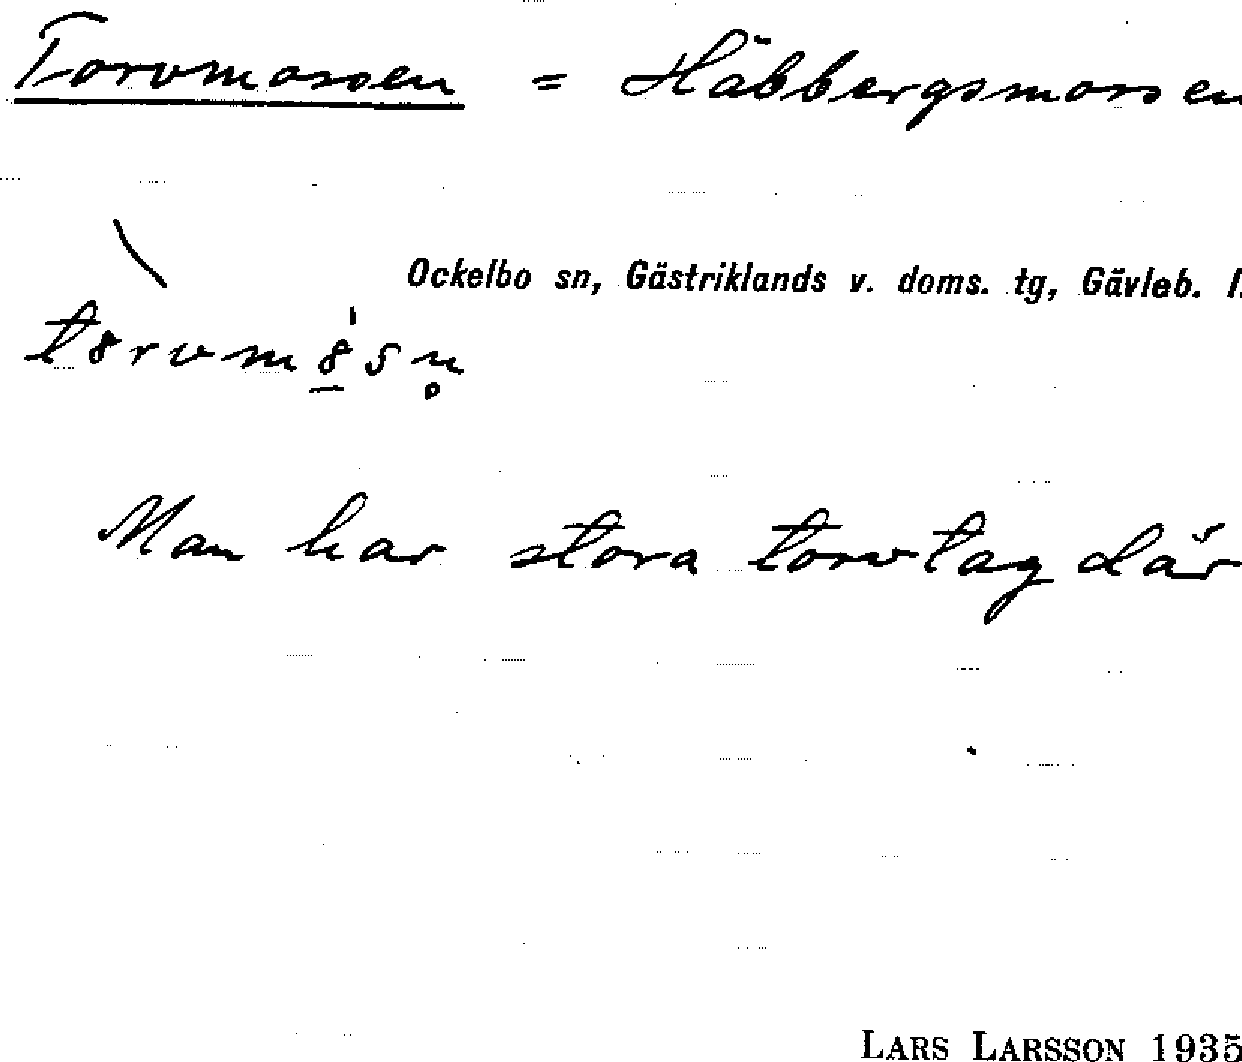 Torvmossen = Häbbergsmossen
Ockelbo sn, Gästriklands v. doms. tg, Gävleb. l.
Man har stora torvtag där
LARS LARSSON 1935